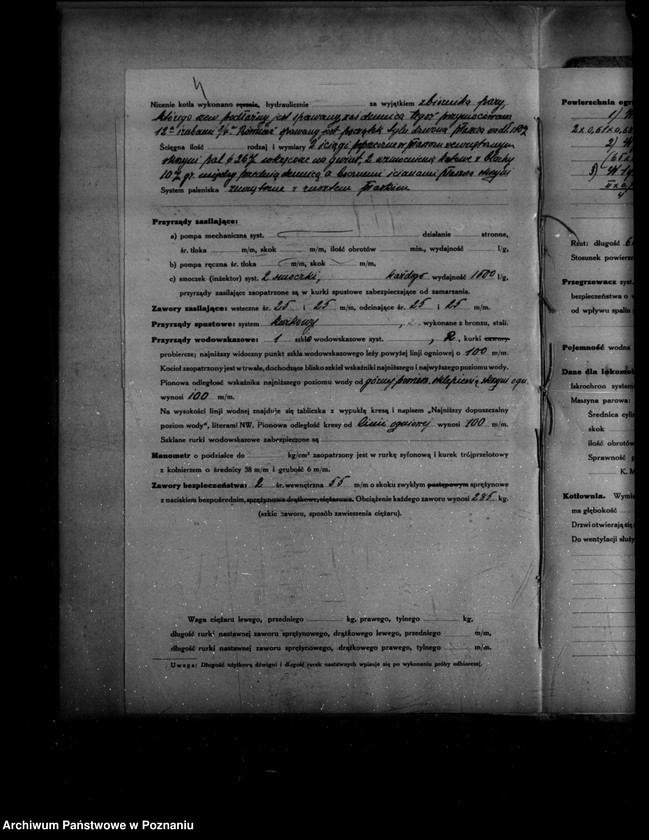 Nicenie kotła wykonano ręcznie, hydraulicznie za wyjątkiem zbiornika pary,
którego szew podłużny jest spawany, zaś dennica
12-a śrubami spawany jest
Ścięgna ilość rodzaj i wymiary 2 ściągi poprzeczne w płaszczu zewnętrznym
skrzyni pal.
między przednią dennicą a bocznemi ścianami płaszcza skrzyni
System paleniska rusztowe z rusztem płaskim
Przyrządy zasilające:
a) pompa mechaniczna syst. działanie stronne,
śr. tłoka m/m, skok m/m, ilość obrotów min., wydajność l/g,
b) pompa ręczna śr. tłoka m/m, skok m/m,
c) smoczek (inżektor) syst. 2 smoczki; każdego wydajność l/g,
przyrządy zasilające zaopatrzone są w kurki spustowe zabezpieczające od zamarzania.
Zawory zasilające: wsteczne śr. 25 i 25 m/m, odcinające śr. 25 i 25 m/m.
Przyrządy spustowe: system kurkowy, wykonane z bronzu, stali.
Przyrządy wodowskazowe: 1 szkło wodowskazowe syst. , 2, kurki zawory
probiercze; najniższy widoczny punkt szkła wodowskazowego leży powyżej linji ogniowej o 100 m/m.
Kocioł zaopatrzony jest w trwałe, dochodzące blisko szkieł wskaźniki najniższego i najwyższego poziomu wody.
Pionowa odległość wskaźnika najniższego poziomu wody od górnej sklepienia skrzyni ogn.
wynosi 100 m/m.
Na wysokości linji wodnej znajduje się tabliczka z wypukłą kresą i napisem „Najniższy dopuszczalny
poziom wody", literami NW. Pionowa odległość kresy od linii ogniowej wynosi 100 m/m.
Szklane rurki wodowskazowe zabezpieczone są
Manometr o podziałce do kg/cm² zaopatrzony jest w rurkę syfonową i kurek trójprzelotowy
z kołnierzem o średnicy 38 m/m i grubość 6 m/m.
Zawory bezpieczeństwa: 2 śr. wewnętrzna 55 m/m o skoku zwykłym postępowym sprężynowe
z naciskiem bezpośrednim, sprężynowe drążkowe, ciężarowe. Obciążenie każdego zaworu wynosi 285 kg.
(szkic zaworu, sposób zawieszenia ciężaru).
Waga ciężaru lewego, przedniego kg, prawego, tylnego kg,
długość rurki nastawnej zaworu sprężynowego, drążkowego lewego, przedniego m/m,
długość rurki nastawnej zaworu sprężynowego, drążkowego prawego, tylnego m/m.
Uwaga: Długość użytkową dźwigni i długość rurek nastawnych wpisuje się po wykonaniu próby odbiorczej.
Powierzchnia ogr
Reszt: długość
Stosunek powierz
Przegrzewacz syst.
bezpieczeństwa o
od wpływu spalin
Pojemność wodna
Dane dla lokomob
Iskrochron system
Maszyna parowa:
Średnica cyli
skok
ilość obrotów
Sprawność p
K. M
Kotłownia. Wymia
ma głębokość
Drzwi otwierają się
Do wentylacji służy
Archiwum Państwowe w Poznaniu